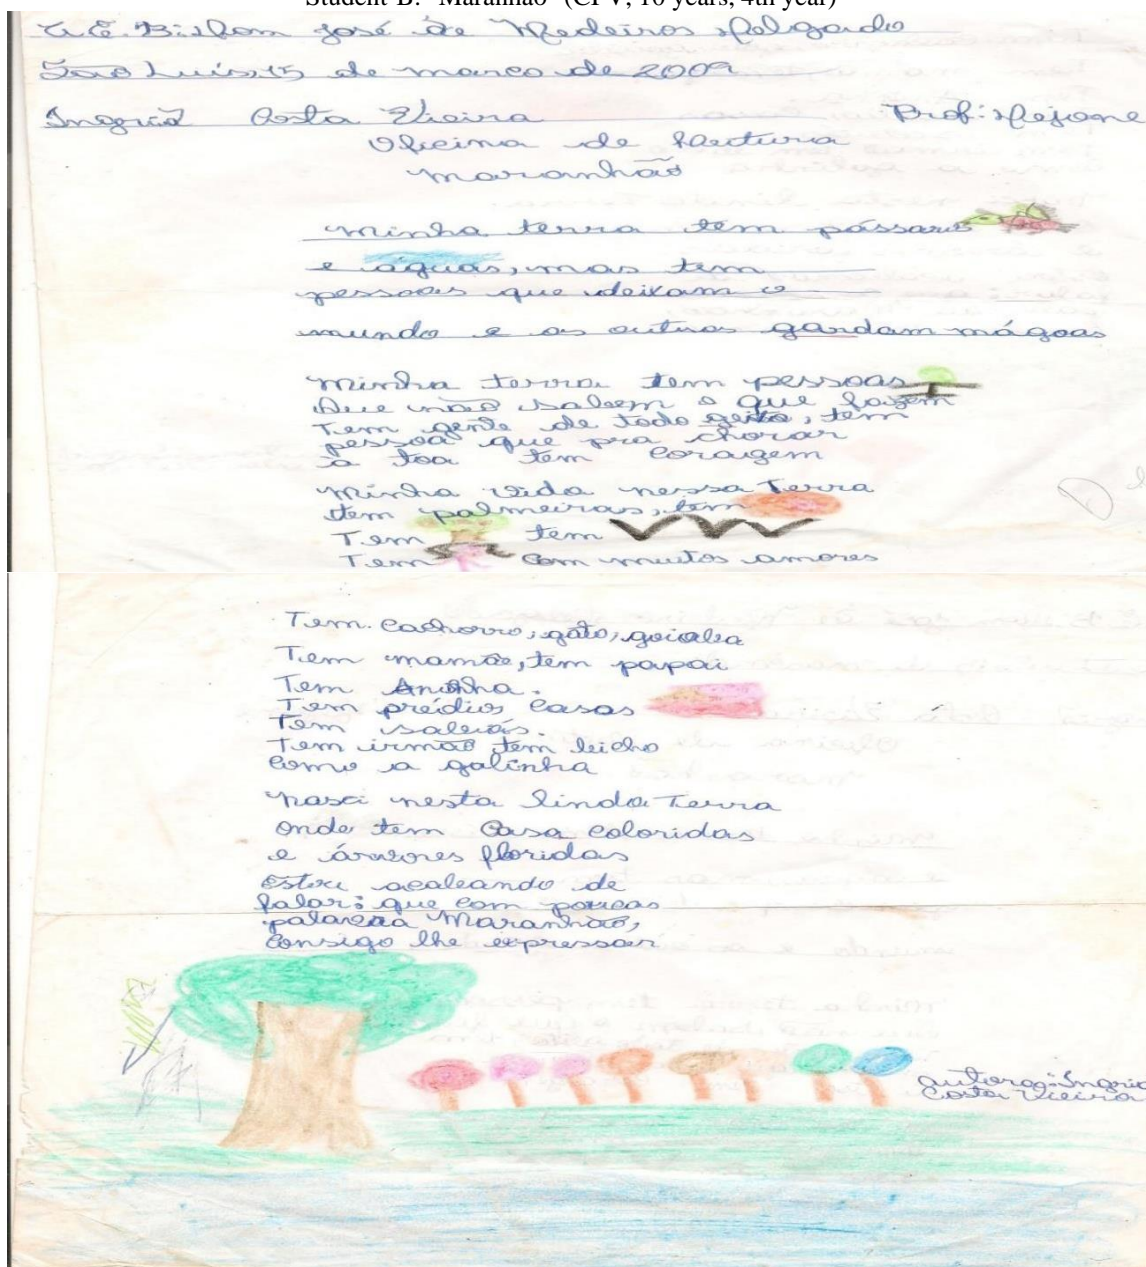 Student B: "Maranhão" (CPV, 10 years, 4th year)
U.E. B: Dom José de Medeiros Delgado
São Luís, 15 de março de 2009
Ingrid Costa Vieira Prof: Dejane
Oficina de Leitura
Maranhão
Minha terra tem pássaros
e águas, mas tem
pessoas que deixam o
mundo e os outros gardam mágoas
Minha terra tem pessoas
Que não sabem o que fazem
Tem gente de todo geito, tem
pessoa que pra chorar
a toa tem coragem
Minha vida nessa Terra
tem palmeiras, tem
Tem tem
Tem com muitos amores
Tem cachorro, gato, goiaba
Tem mamãe, tem papai
Tem Aninha.
Tem prédios casas
Tem
Tem irmão tem bicho
como a galinha
Nasci nesta linda Terra
onde tem casa coloridas
e árvores floridas
Estou acabando de
falar: que com poucas
palavra Maranhão,
consigo lhe expressar
autora: Ingrid
Costa Vieira